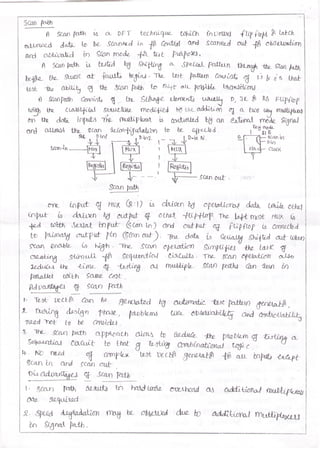 Scan path
A Scan path is a DFT technique which
data to be scanned in for control and scanned out for observation
and activated in scan mode for test purposes.
A Scan path is tested by shifting a special pattern through the scan path
before the at faults begins. The test pattern consists of 1's & 0's that
test the ability of the scan path to all possible transitions
A scanpath consists of the storage elements usually D, JK or RS Flipflop
with the classical structure modified by the addition of a two way multiplexer
on the data inputs. The multiplexer is controlled by an external mode signal
and allows the scan to be effected.
Scan-in
MUX MUX MUX
Register Register Register
Scan out
Scan path
one input of MUX is driven by operational data while other
input is driven by output of other flip-flop. The left most mux is
fed with serial input (Scan in) and output of flipflop is connected
to primary output pin (Scan out). The data is serially shifted out when
scan enable is high. The scan operation simplifies the task of
creating stimuli for sequential circuits. The scan operation also
reduces the time of testing as multiple scan paths can scan in
parallel with same cost
Advantages of scan path
1. Test vectors can be generated by automatic test pattern generator.
2. During design phase, problems like observability and controllability
need not to be consider.
3. The scan path approach aims to reduce the problem of testing a
sequential circuit to that of testing combinational logic.
4. No need of complex test vector generator for all inputs except
scan in and scan out
Disadvantages of scan path
1. Scan path results in hardware overhead as additional multiplexers
are required.
2. Speed degradation may be observed due to additional multiplexers
in signal path.